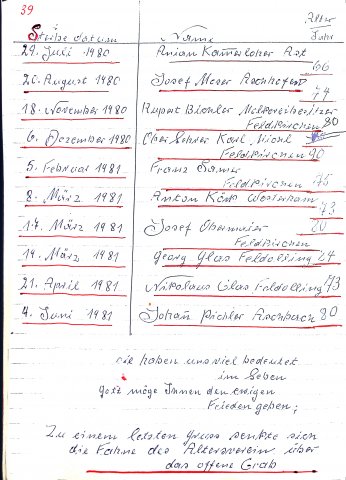 39
Alter
Sterbedatum Name Jahr
29. Juli 1980 Anian Kammerloher Ast
66
20. August 1980 Josef Moser Aschhofen
74
18. November 1980 Rupert Bichler
Feldkirchen 80
6. Dezember 1980 Karl
Feldkirchen 90
5. Februar 1981 Franz
Feldkirchen 75
8. März 1981 Anton Westerham
73
17. März 1981 Josef Obermeier 80
Feldkirchen
19. März 1981 Georg Glas Feldolling 24
21. April 1981 Nikolaus Glas Feldolling 73
4. Juni 1981 Johan Pichler 80
sie haben uns viel bedeutet
im Leben
Gott möge Ihnen den ewigen
Frieden geben;
Zu einem letzten Gruss senkte sich
die Fahne des Altersverein über
das offene Grab